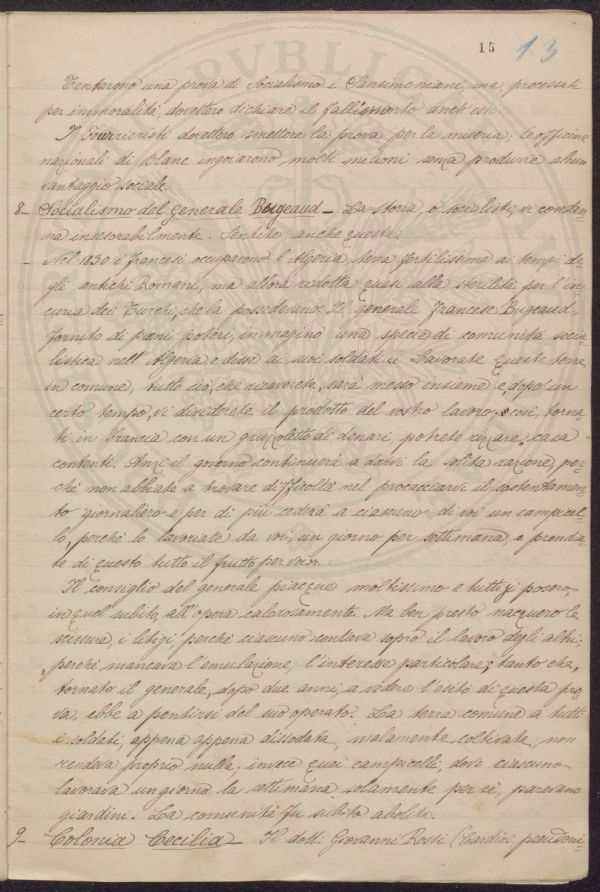 15 13
Tentarono una prova di Socialismo i Sansimoniani, ma, processati
per immoralità, dovettero dichiare il fallimento anch'essi.
I Fourrieristi dovettero smettere la prova per la miseria; le officine
nazionali di Blanc ingoiarono molti milioni senza produrre alcun
vantaggio sociale.
8_ Socialismo del generale Bugeaud_ La storia, o socialisti, vi condan-
na inesorabilmente. Sentite anche questa.
_ Nel 1830 i francesi occuparono l'Algeria, terra fertilissima ai tempi de-
gli antichi Romani, ma allora ridotta quasi alla sterilità per l'in-
curia dei Turchi, che la possedevano. Il generale francese Bugeaud,
fornito di pieni poteri, immaginò una specie di comunità socia-
listica nell'Algeria e disse ai suoi soldati: « Lavorate queste terre
in comune, tutto ciò, che ricaverete, sarà messo insieme e, dopo un
certo tempo, vi dividerete il prodotto del vostro lavoro; e così, torna-
ti in Francia con un gruzzoletto di denari, potrete rizzare casa
contenti. Anzi il governo continuerà a darvi la solita razione, per-
chè non abbiate a trovare difficoltà nel procacciarvi il sostentamen-
to giornaliero e per di più cederà a ciascuno di voi un campicel-
lo, perchè lo lavoriate da voi, un giorno per settimana, e prendia-
te di questo tutto il frutto per voi».
Il consiglio del generale piacque moltissimo e tutti si posero,
in quel subito, all'opera calorosamente. Ma ben presto nacquero le
scissure, i litigi perchè ciascuno contava sopra il lavoro degli altri,
perchè mancava l'emulazione, l'interesse particolare; tanto che,
tornato il generale, dopo due anni, a vedere l'esito di questa pro-
va, ebbe a pentirsi del suo operato. La terra comune a tutti
i soldati, appena appena dissodata, malamente coltivata, non
rendeva proprio nulla; invece quei campicelli, dove ciascuno
lavorava un giorno la settimana solamente per sè, parevano
giardini. La comunità fu subito abolita.
9_ Colonia Cecilia_ Il dott. Giovanni Rossi (Cardias, pseudoni-